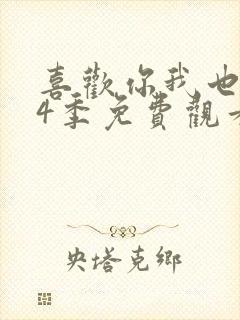 喜歡你我也
4季免費觀
央塔克鄉